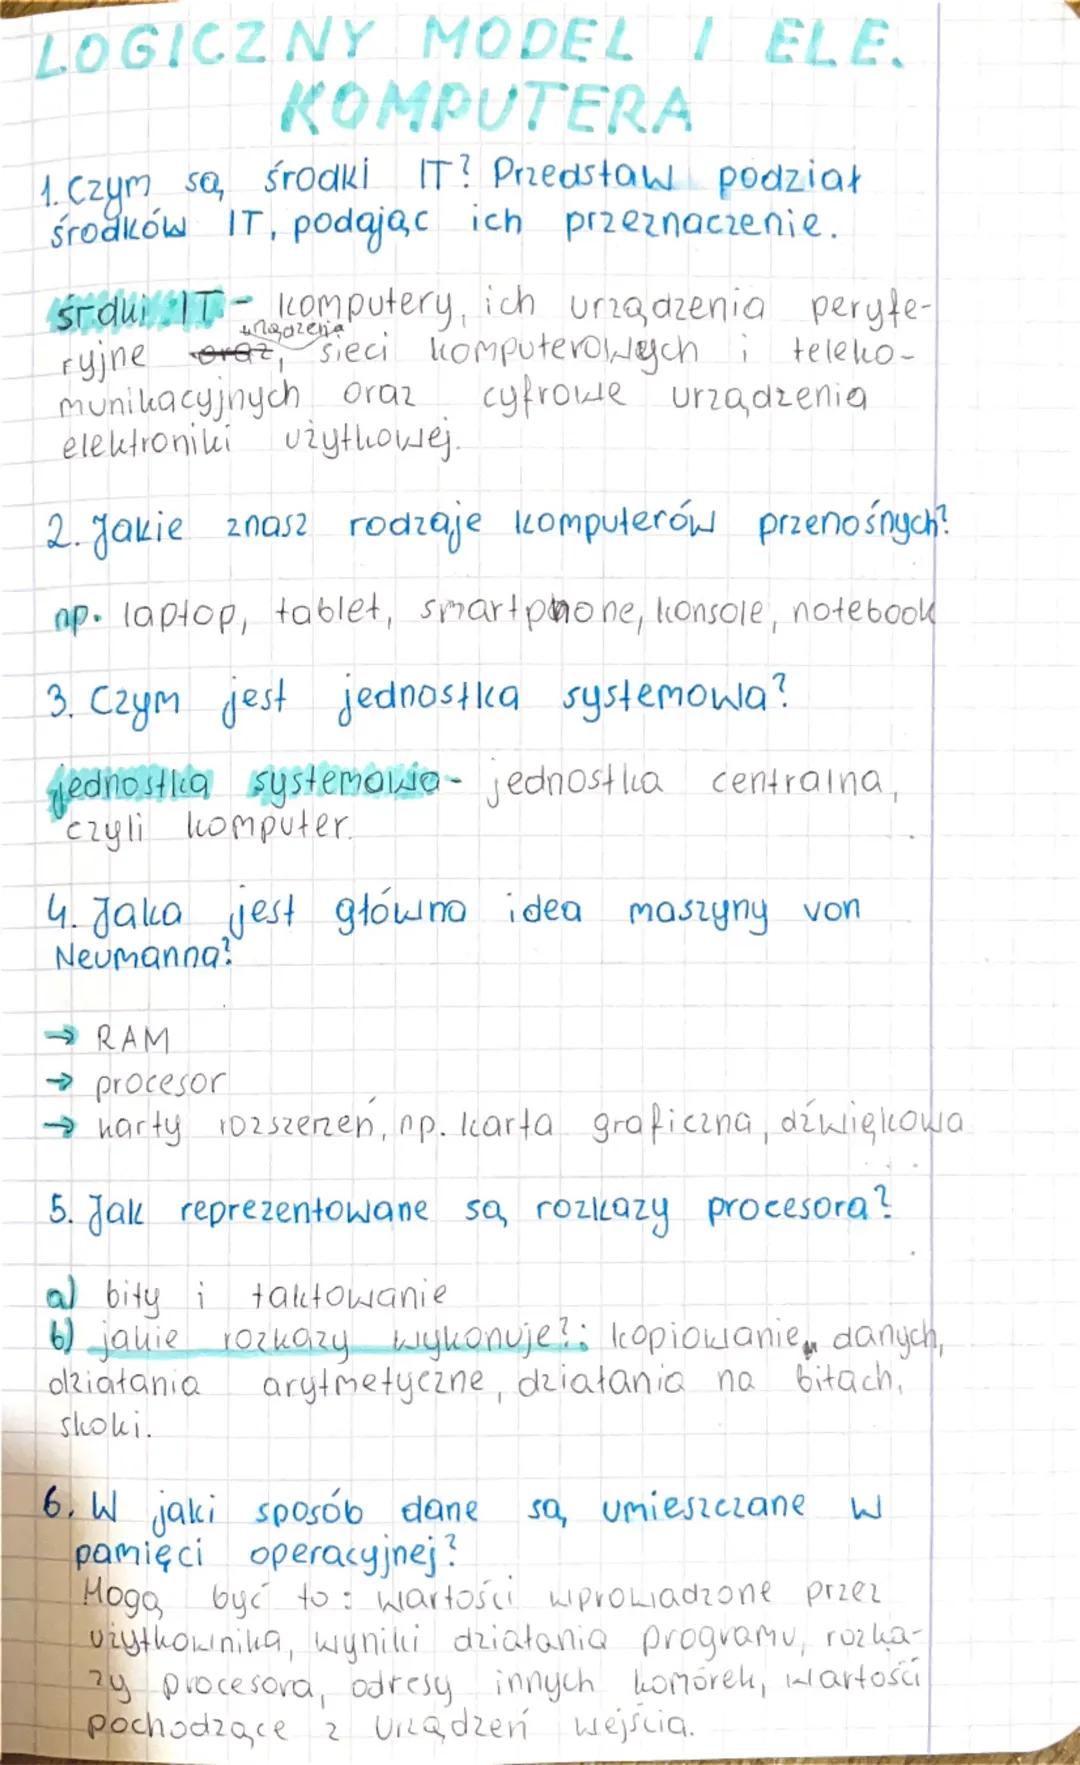 LOGICZNY MODEL I ELE.
KOMPUTERA
1. Czym są środki IT? Przedstaw podział
środków IT, podając ich przeznaczenie.
śrdki IT - komputery, ich urządzenia peryfe-
urządzenia
ryjne oraz, sieci komputerowych i teleko-
munikacyjnych oraz cyfrowe urządzenia
elektroniki użytkowej.
2. Jakie znasz rodzaje komputerów przenośnych?
np. laptop, tablet, smartphone, konsole, notebook
3. Czym jest jednostka systemowa?
jednostka systemowa - jednostka centralna,
czyli komputer.
4. Jaka jest główna idea maszyny von
Neumanna?
→ RAM
→ procesor
→ karty rozszerzeń, np. karta graficzna, dźwiękowa
5. Jak reprezentowane są rozkazy procesora?
a) bity i taktowanie
b) jakie rozkazy wykonuje?: kopiowanie danych,
działania arytmetyczne, działania na bitach,
skoki.
6. W jaki sposób dane są umieszczane w
pamięci operacyjnej?
Mogą być to: wartości wprowadzone przez
użytkownika, wyniki działania programu, rozka-
zy procesora, adresy innych komórek, wartości
pochodzące z urządzeń wejścia.